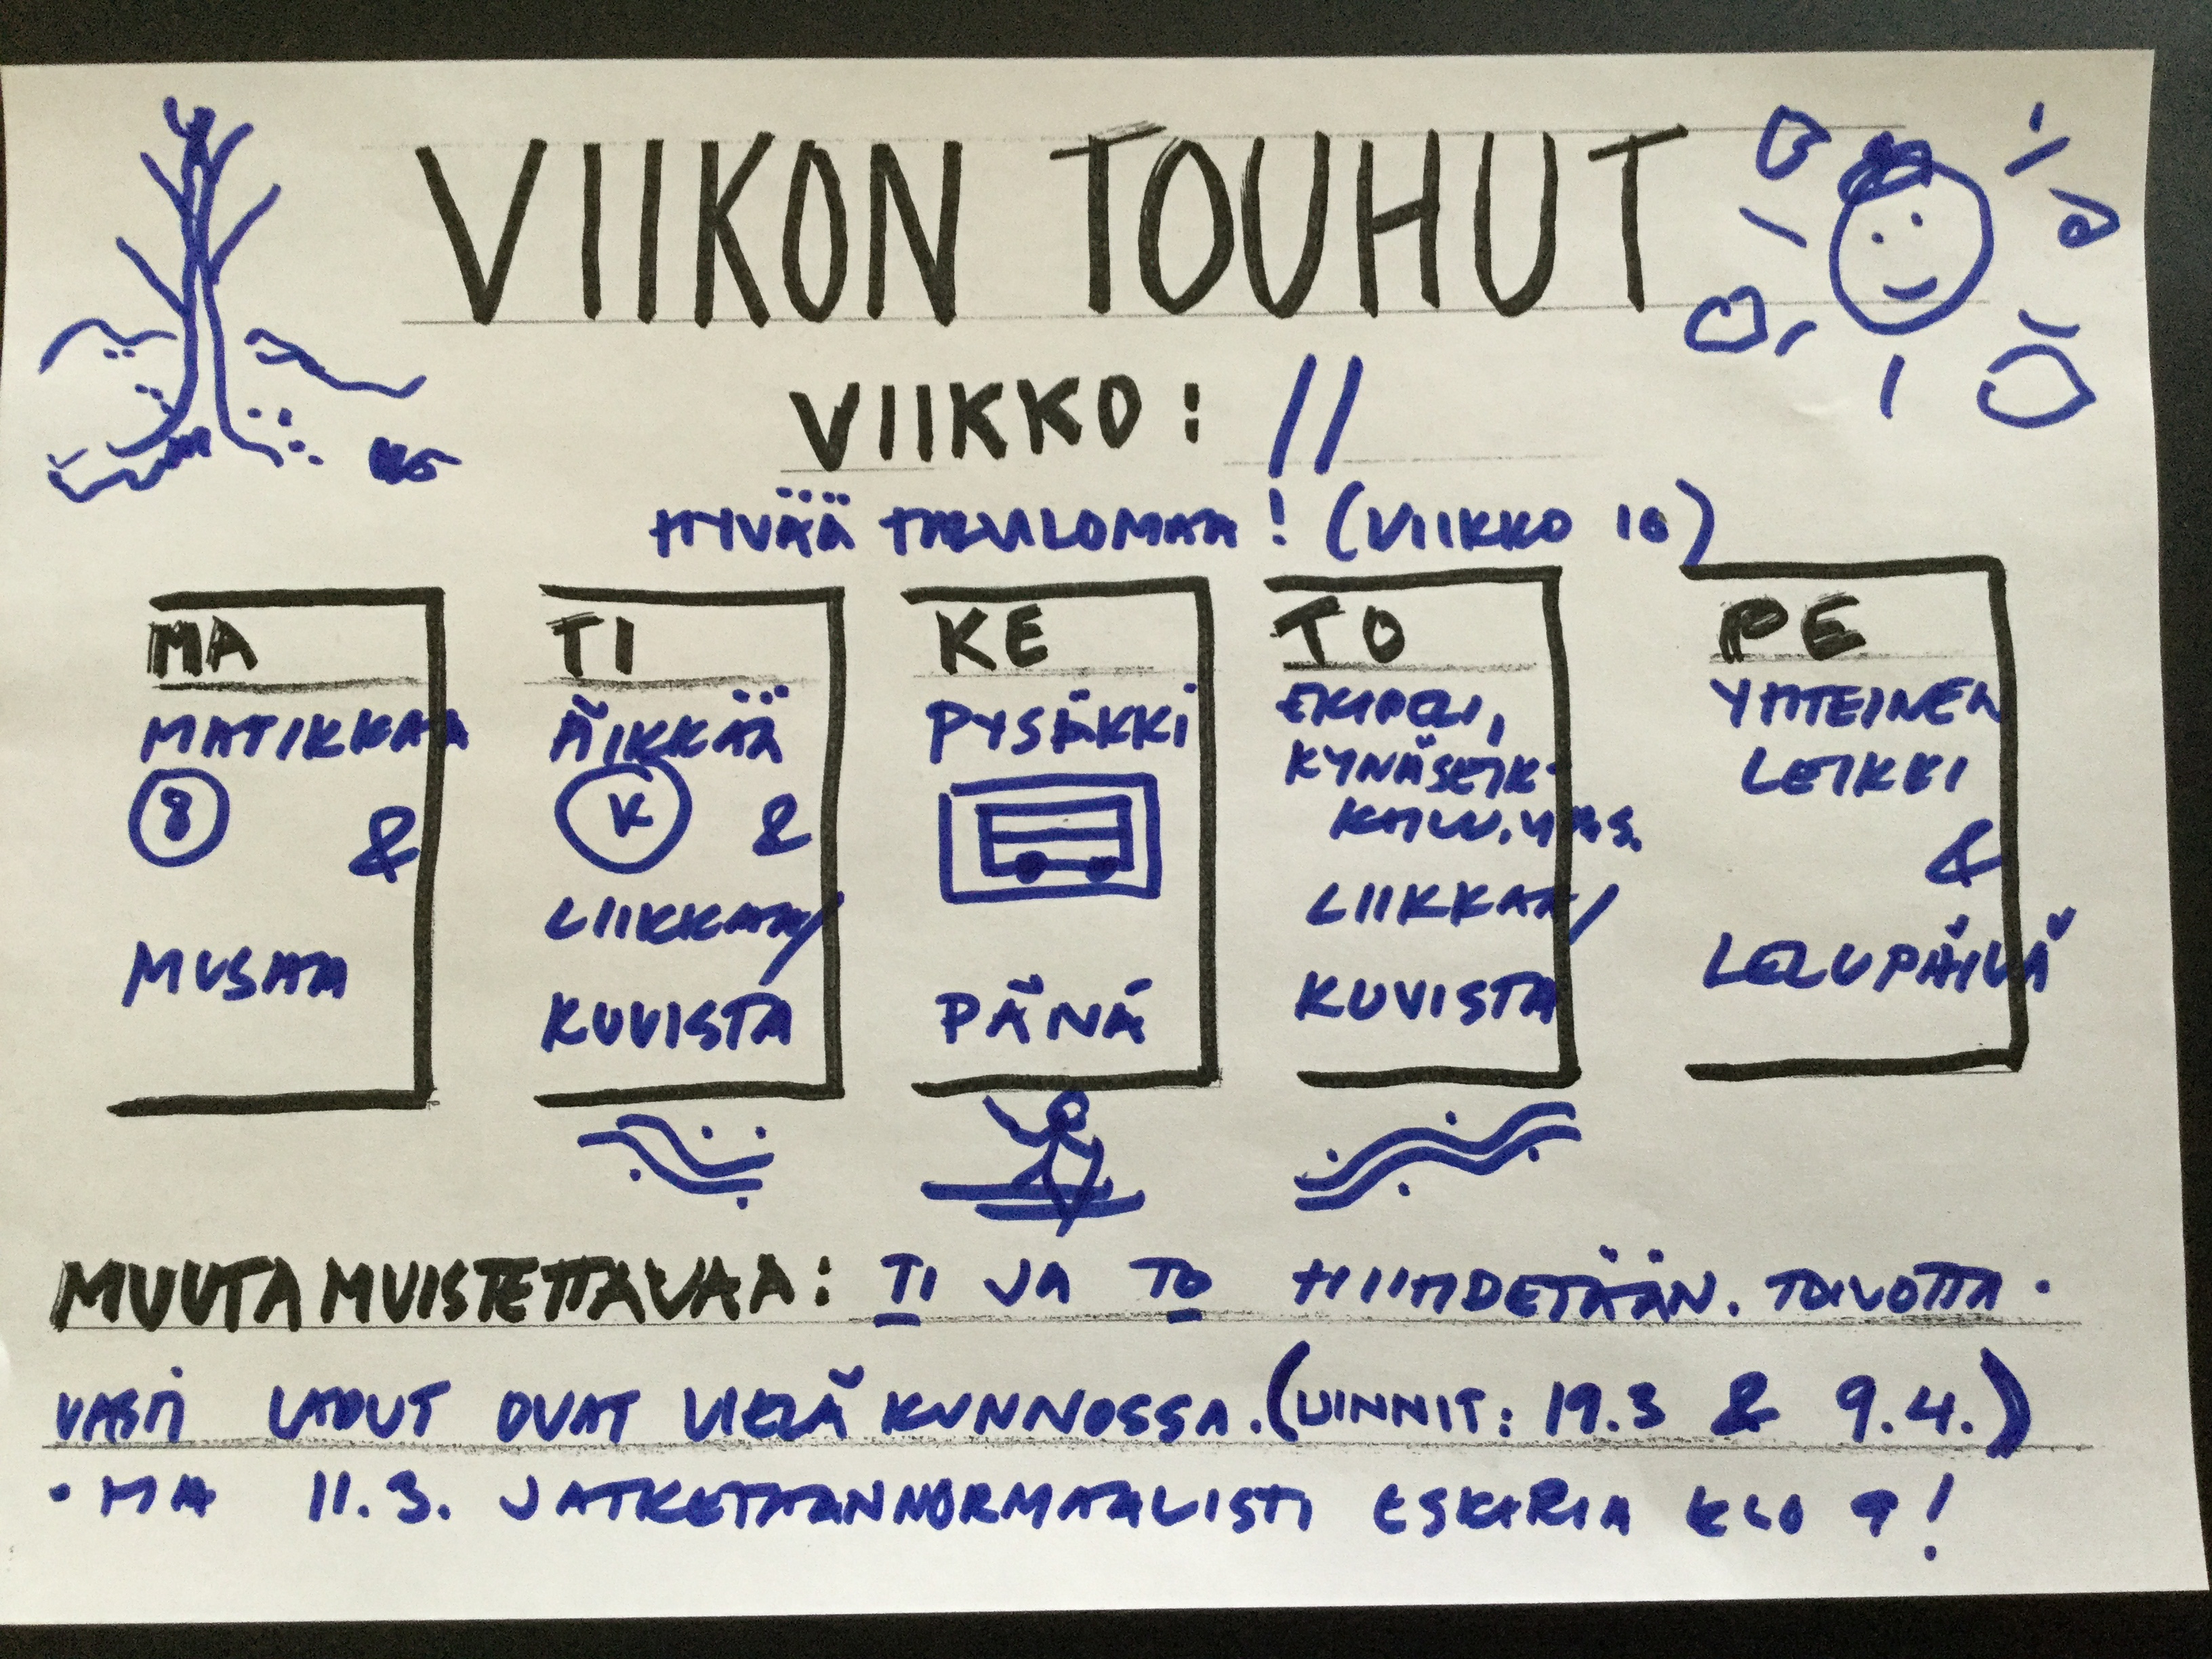 VIIKON TOUHUT
VIIKKO: 11
HYVÄÄ TALVILOMAA! (VIIKKO 10)
MA
MATIKKAA
8 &
MUSAA
TI
ÄIKKÄÄ
K &
LIIKKAA/
KUVISTA
KE
PYSÄKKI
PÄNÄ
TO
EKAPELI,
KYNÄSEIK-
KAILU. YMS.
LIIKKAA/
KUVISTA
PE
YHTEINEN
LEIKKI
&
LELUPÄIVÄ
MUUTA MUISTETTAVAA: TI JA TO HIIHDETÄÄN. TOIVOTTA-
VASTI LADUT OVAT VIELÄ KUNNOSSA. (UINNIT: 19.3 & 9.4.)
• MA 11.3. JATKETAAN NORMAALISTI ESKARIA KLO 9!